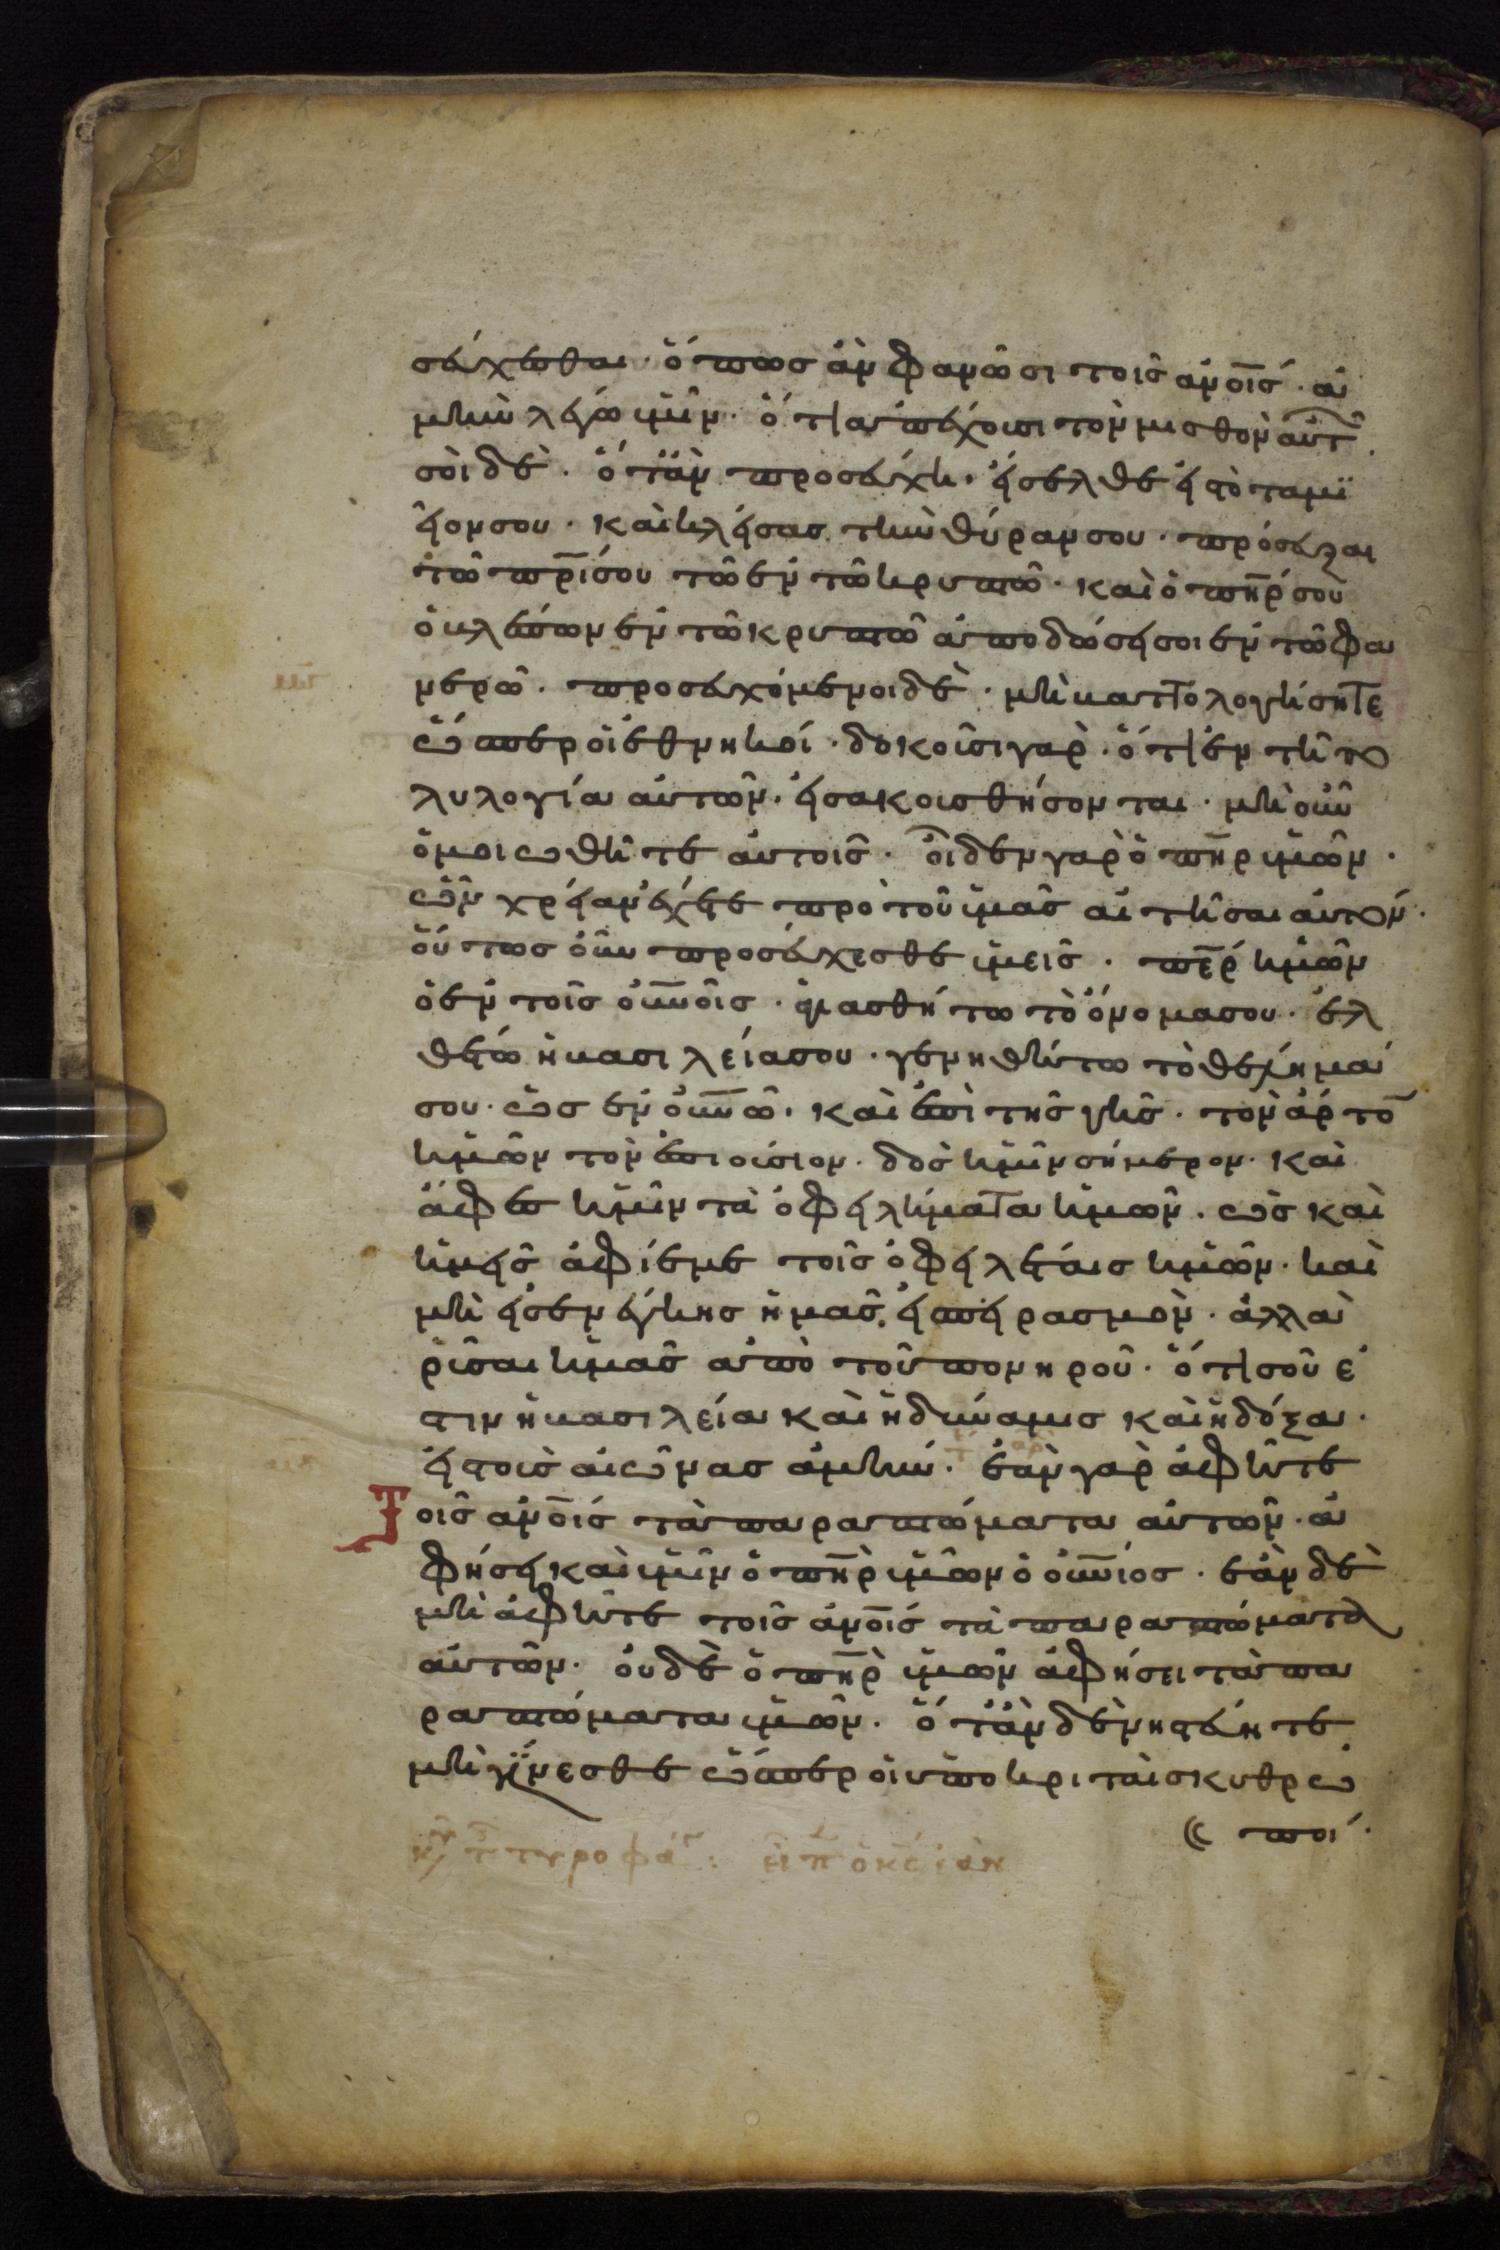 σεύχεσθαι· ὅπως ἂν φανῶσι τοῖς ἀν̅οι̅ς· ἀ
μὴν λέγω ὑμῖν· ὅτι ἀπέχουσι τὸν μισθὸν αὐτ
σὺ δὲ· ὅτἂν προσεύχη· εἴσελθε εἰς τὸ ταμι
εῖον σου· καὶ κλείσας τὴν θύραν σου· πρόσευξαι
τῶ πρ̅ί σου τῶ ἐν τῶ κρυπτῶ· καὶ ὁ πη̅ρ σοὺ
ὁ βλέπων ἐν τῶ κρυπτῶ ἀποδώσει σοι ἐν τῶ φα
νερῶ· προσευχόμενοι δὲ· μὴ βαττολογήσητε
ὥσπερ οἱ ἐθνηκοί· δοκοῦσι γὰρ· ὅτι ἐν τῆ πο
λυλογία αὐτῶν· εἰσακουσθήσονται· μὴ οὖν
ὁμοιωθῆτε αὐτοῖς· οἶδεν γὰρ ὁ πη̅ρ ὑμῶν·
ὧν χρείαν ἔχετε πρὸ τοῦ ὑμᾶς αἰτῆσαι αὐτόν·
οὕτως οὖν προσεύχεσθε ὑμεῖς· πε̅ρ ἡμῶν
ὁ ἐν τοῖς οὐν̅οῖς· ἁγιασθήτω τὸ ὄνομα σου· ἐλ
θέτω ἡ βασιλεία σου· γενηθήτω τὸ θέλημα
σου· ὡς ἐν οὐν̅ῶ· καὶ ἐπὶ τῆς γῆς· τὸν ἄρτο̅
ἡμῶν τὸν ἐπιούσιον· δὸς ἡμῖν σήμερον· καὶ
ἄφες ἡμῖν τὰ ὀφειλήματα ἡμῶν· ὡς καὶ
ἡμεῖς ἀφίεμε τοῖς ὀφειλέταις ἡμῶν· καὶ
μὴ εἰσενέγκης ἡμᾶς εἰς πειρασμὸν· ἀλλὰ
ῥῦσαι ἡμᾶς ἀπὸ τοῦ πονηροῦ· ὅτι σοῦ ἐ
στιν ἡ βασιλεία καὶ ἡ δύναμις καὶ ἡ δόξα·
εἰς τοὺς αἰῶνας ἀμήν· ἐὰν γὰρ ἀφῆτε
Τοῖς ἀν̅οι̅ς τὰ παραπτώματα αὐτῶν· ἀ
φήσει καὶ ὑμῖν ὁ πη̅ρ ὑμῶν ὁ οὐν̅ιος· ἐὰν δὲ
μὴ ἀφῆτε τοῖς ἀν̅οι̅ς τὰ παραπτώματα
αὐτῶν· οὐδὲ ὁ πη̅ρ ὑμῶν ἀφήσει τὰ πα
ραπτώματα ὑμῶν· ὅτἂν δὲ νηστεύητε
μὴ γίνεσθε ὥσπερ οἱ ὑποκριταὶ σκυθρω
ποί·